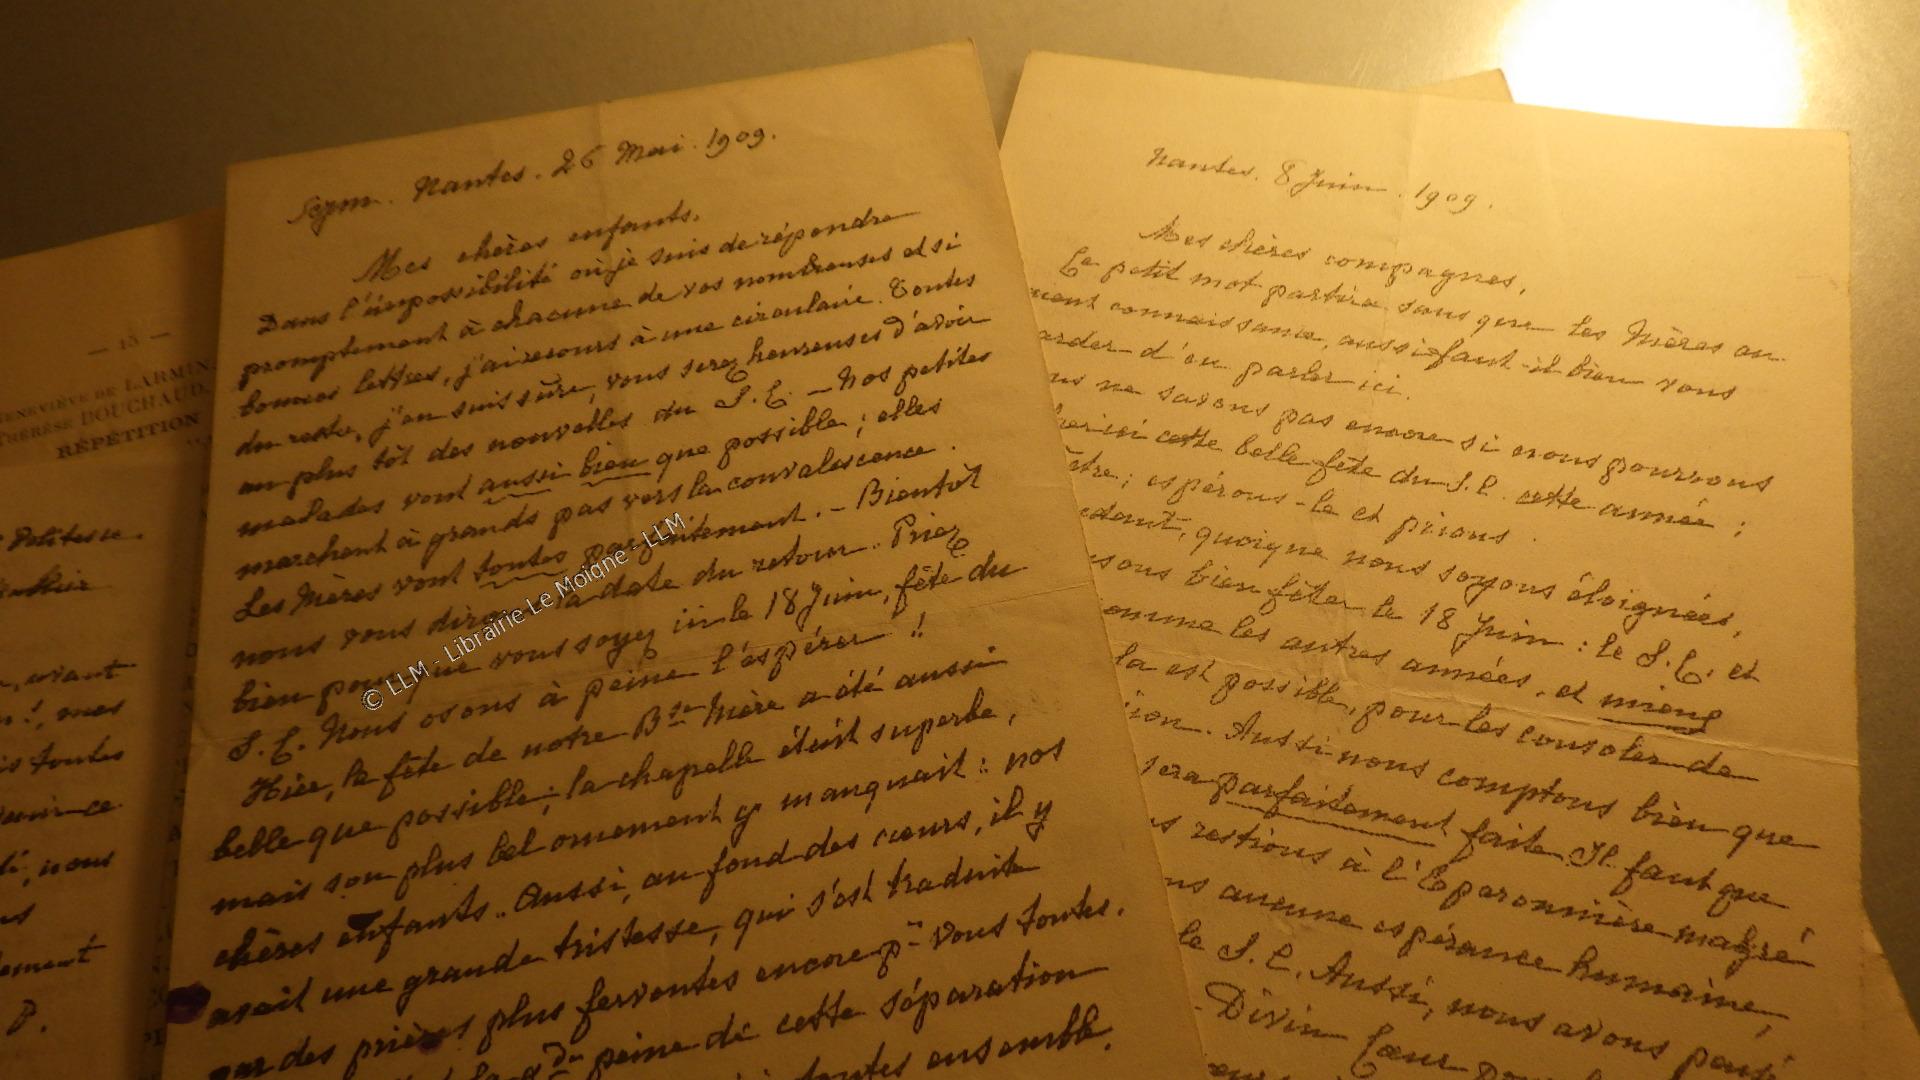 — 15 —
GENEVIÈVE DE LARMIN
THÉRÈSE BOUCHAUD
RÉPÉTITION
Politesse.
, avant
mes
toutes
ce
, nous
P.
Nantes. 26 Mai. 1909.
Mes chères enfants,
Dans l'impossibilité où je suis de répondre
promptement à chacune de vos nombreuses et si
bonnes lettres, j'ai recours à une circulaire. Toutes
du reste, j'en suis sûre, vous serez heureuses d'avoir
au plus tôt des nouvelles du S. C. — Nos petites
malades vont aussi bien que possible ; elles
marchent à grands pas vers la convalescence.
Les Mères vont toutes parfaitement. - Bientôt
nous vous dirons la date du retour. Priez
bien pour que vous soyez ici le 18 Juin, fête du
S. C. Nous osons à peine l'espérer !!
Hier, la fête de notre Bse Mère a été aussi
belle que possible ; la chapelle était superbe,
mais son plus bel ornement y manquait : nos
chères enfants.. Aussi, au fond des cœurs, il y
avait une grande tristesse, qui s'est traduite
par des prières plus ferventes encore pr vous toutes.
peine de cette séparation
toutes ensemble.
© LLM - Librairie Le Moigne - LLM
Nantes. 8 Juin. 1909.
Mes chères compagnes,
Ce petit mot partira sans que les Mères en
connaissance, aussi faut-il bien vous
garder d'en parler ici.
ne savons pas encore si nous pourrons
ici cette belle fête du S. C. cette année ;
; espérons-le et prions.
, quoique nous soyons éloignées,
bien fêter le 18 Juin : le S. C. et
comme les autres années. et mieux
la est possible, pour les consoler de
Aussi nous comptons bien que
sera parfaitement faite. Il faut que
restions à l'Eparonnière malgré
aucune espérance humaine,
le S. C. Aussi, nous avons pensé
Divin Cœur